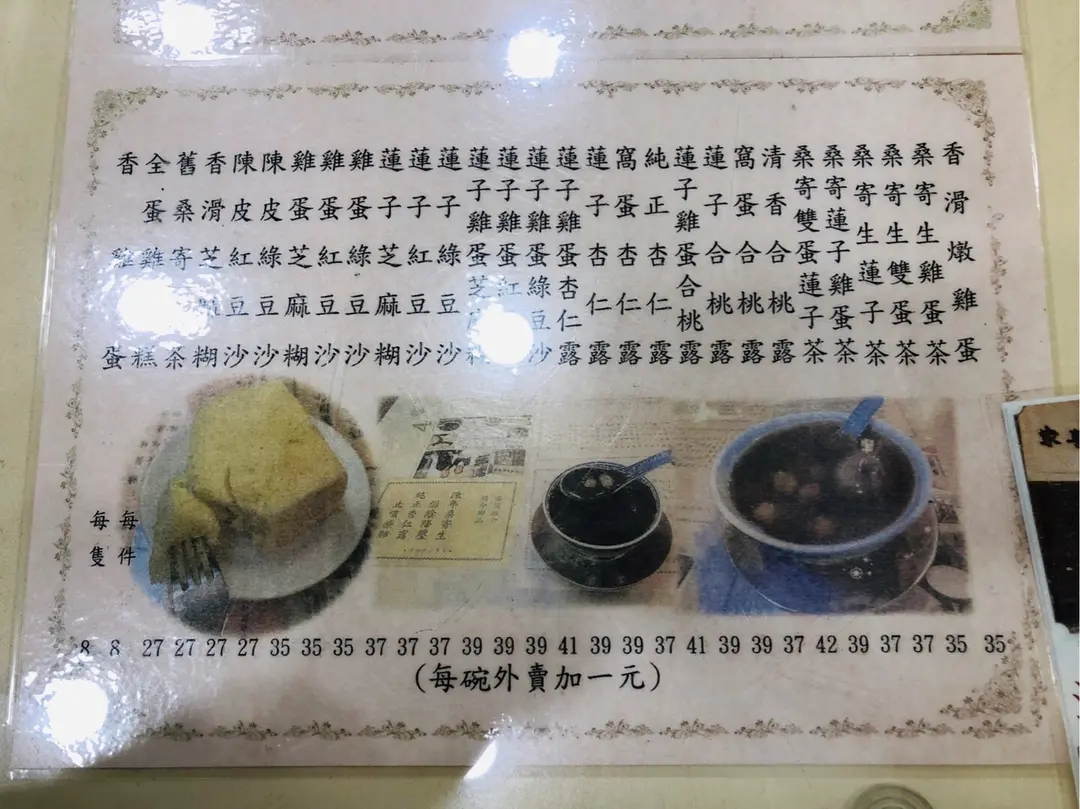 香滑燉雞蛋 35
桑寄生雞蛋茶 35
桑寄生雙蛋茶 37
桑寄生蓮子茶 37
桑寄蓮子雞蛋茶 39
桑寄雙蛋蓮子茶 42
清香合桃露 37
窩蛋合桃露 39
蓮子合桃露 39
蓮子雞蛋合桃露 41
純正杏仁露 37
窩蛋杏仁露 39
蓮子杏仁露 39
蓮子雞蛋杏仁露 41
蓮子雞蛋綠豆沙 39
蓮子雞蛋紅 39
蓮子雞蛋芝糊 39
蓮子綠豆沙 37
蓮子紅豆沙 37
蓮子芝麻糊 37
雞蛋綠豆沙 35
雞蛋紅豆沙 35
雞蛋芝麻糊 35
陳皮綠豆沙 27
陳皮紅豆沙 27
香滑芝麻糊 27
舊桑寄茶 27
全蛋雞糕 每件 8
香雞蛋 每隻 8
(每碗外賣加一元)